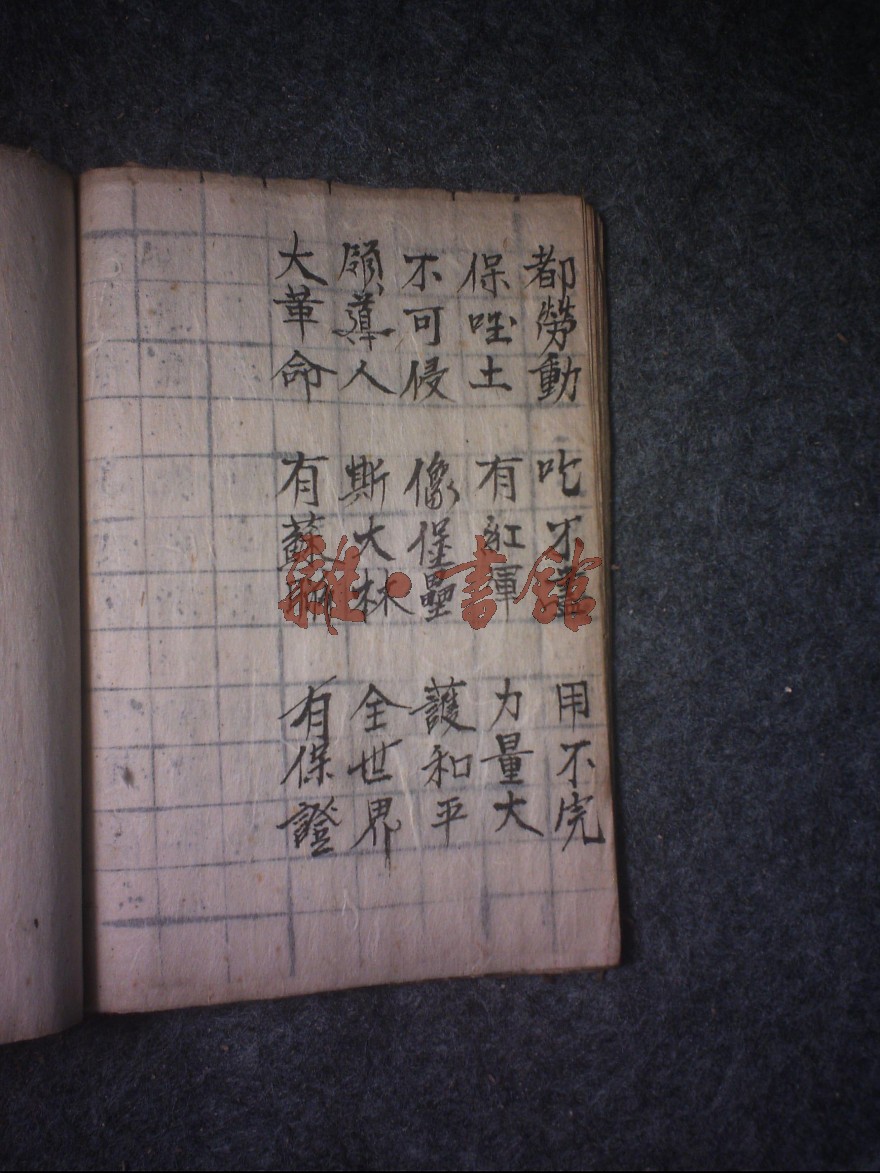 都勞動 吃不盡 用不完
保哇土 有紅軍 力量大
不可侵 像堡壘 護和平
領導人 斯大林 全世界
大革命 有蘇聯 有保證
雜·書館